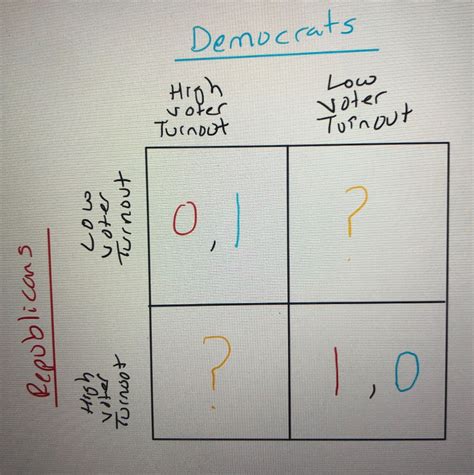 Democrats
High
voter
Turnout
Low
voter
Turnout
Republicans
Low
voter
Turnout
0, 1
?
High
voter
Turnout
?
1, 0